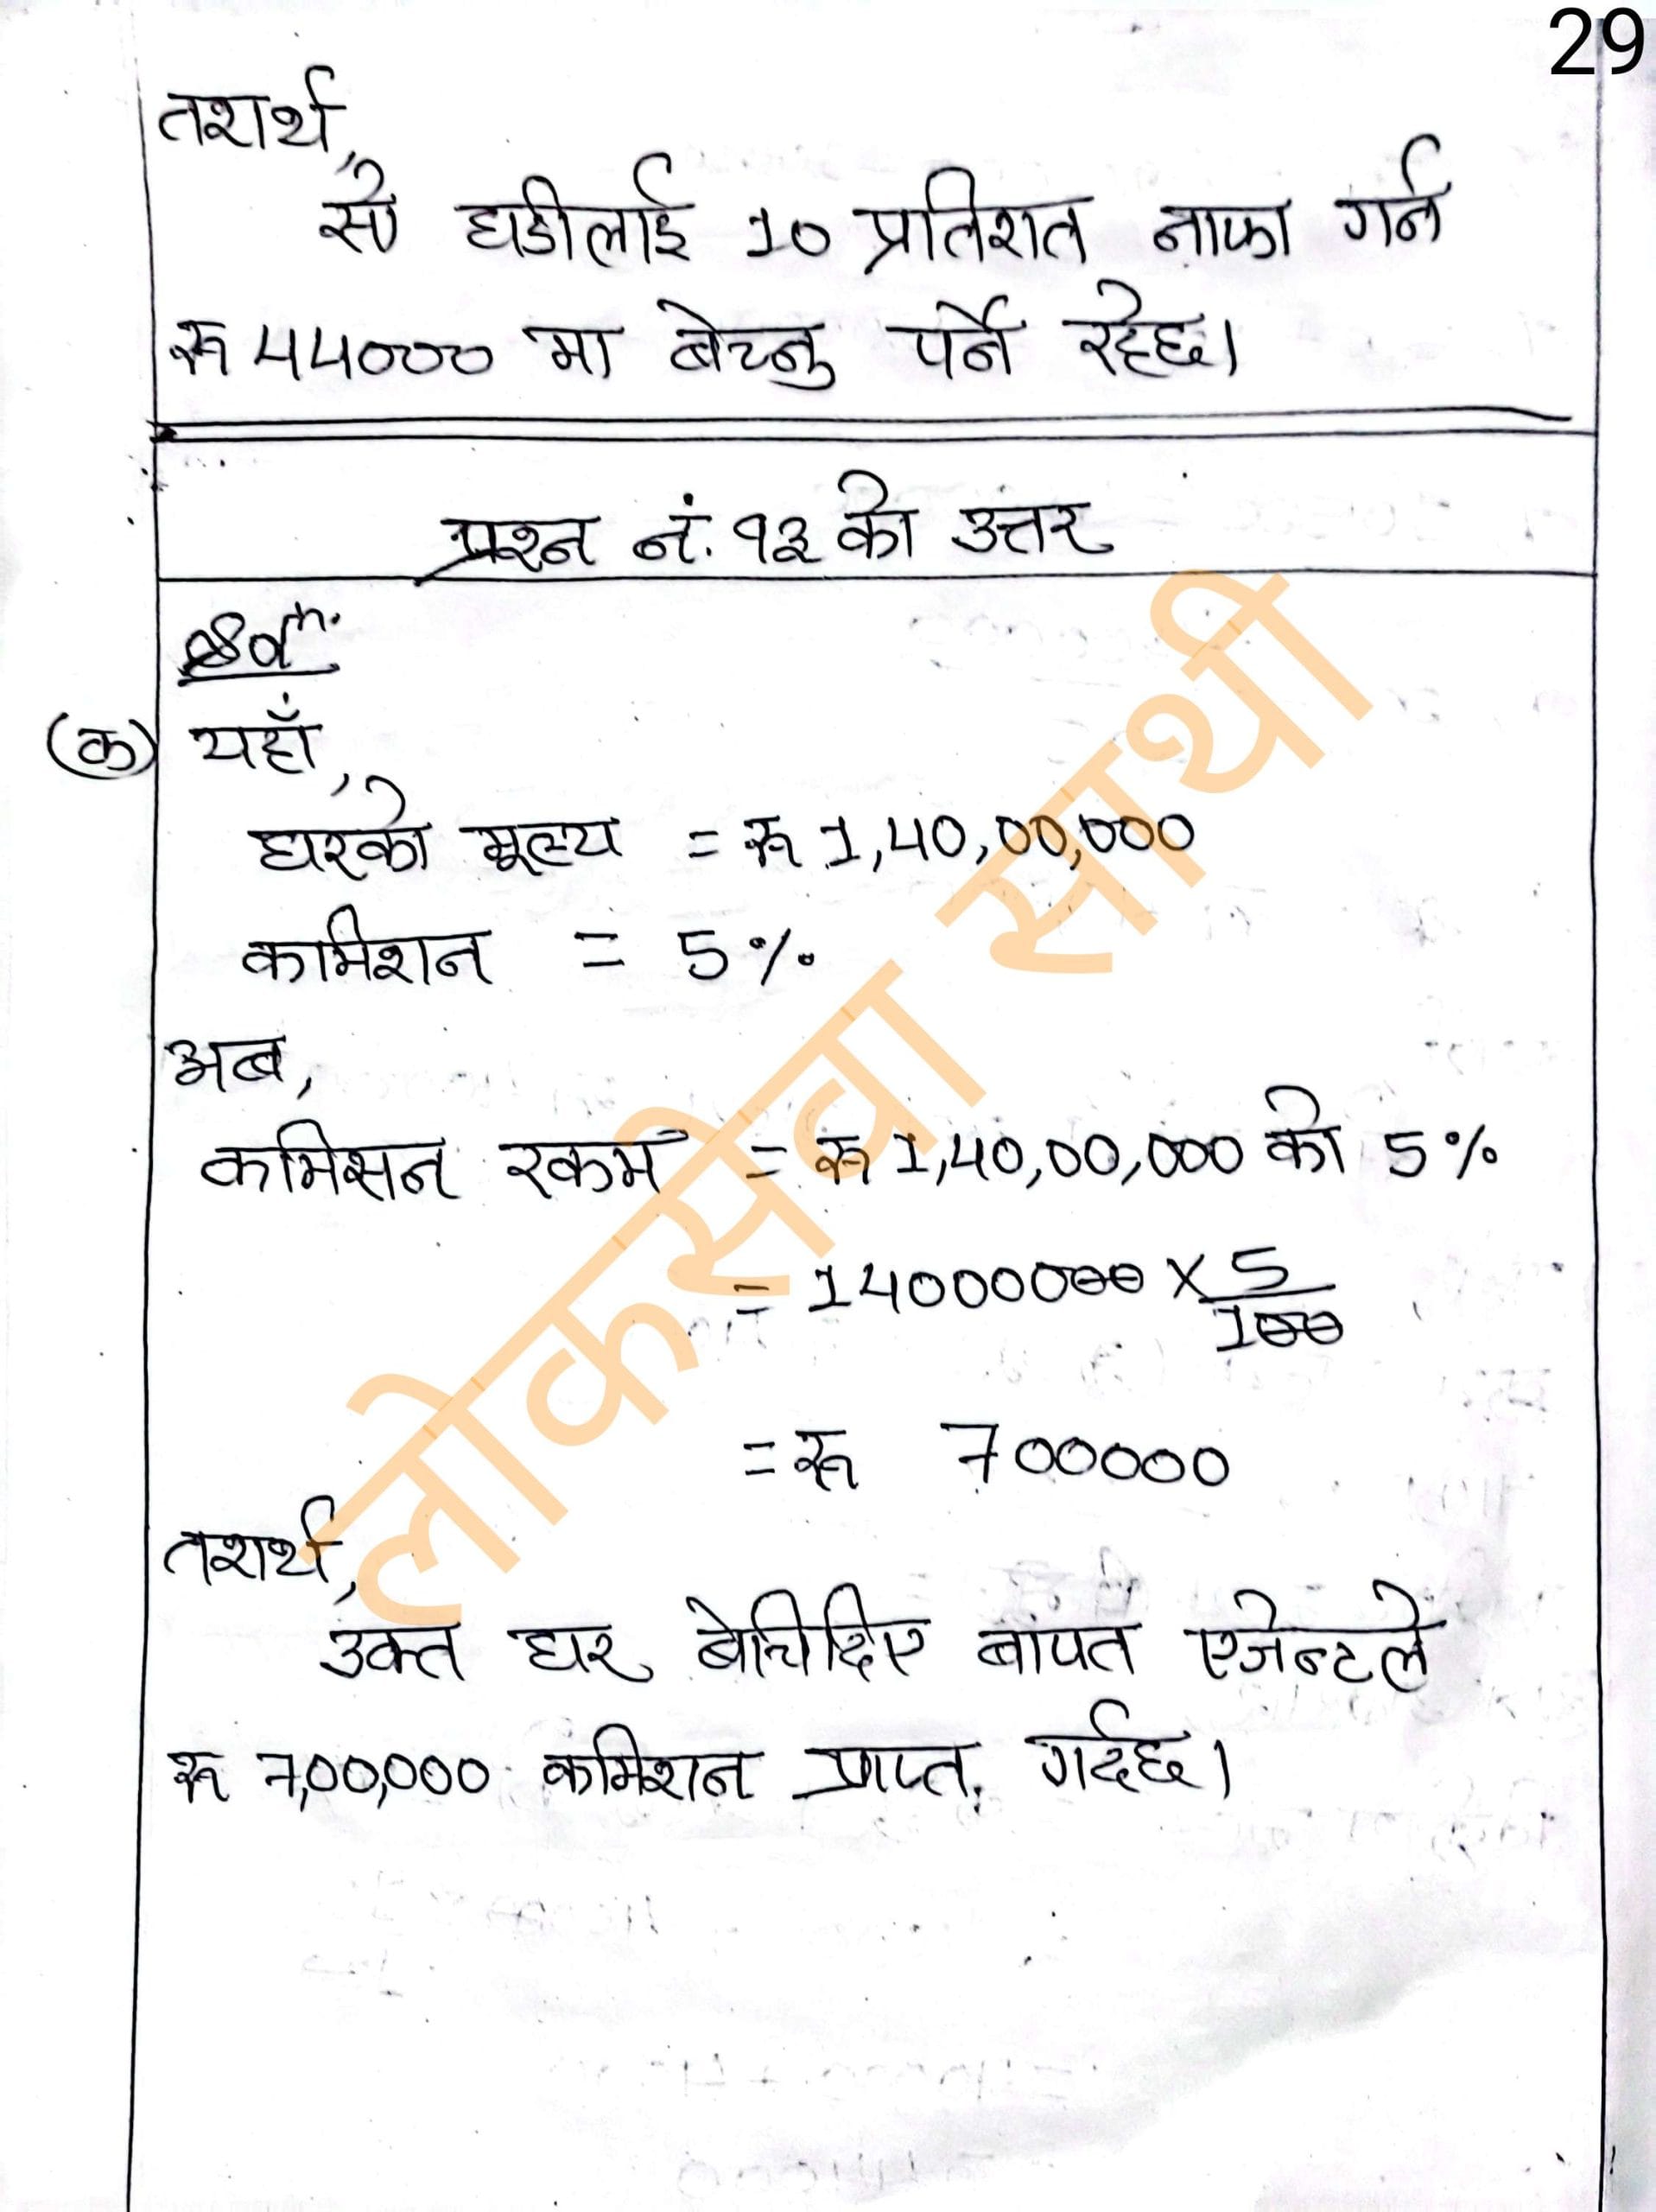 29
तशर्थ,
सो घडीलाई 10 प्रतिशत नाफा गर्न
रू 44000 मा बेच्नु पर्ने रहेछ।
प्रश्न नं. १३ को उत्तर
Solⁿ.
(क) यहाँ,
घरको मूल्य = रू 1,40,00,000
कमिशन = 5%
अब,
कमिसन रकम = रू 1,40,00,000 को 5%
= 14000000 × 5/100
= रू 700000
तशर्थ,
उक्त घर बेचिदिए बापत एजेन्टले
रू 7,00,000 कमिशन प्राप्त गर्दछ।
लोकसेवा साथी